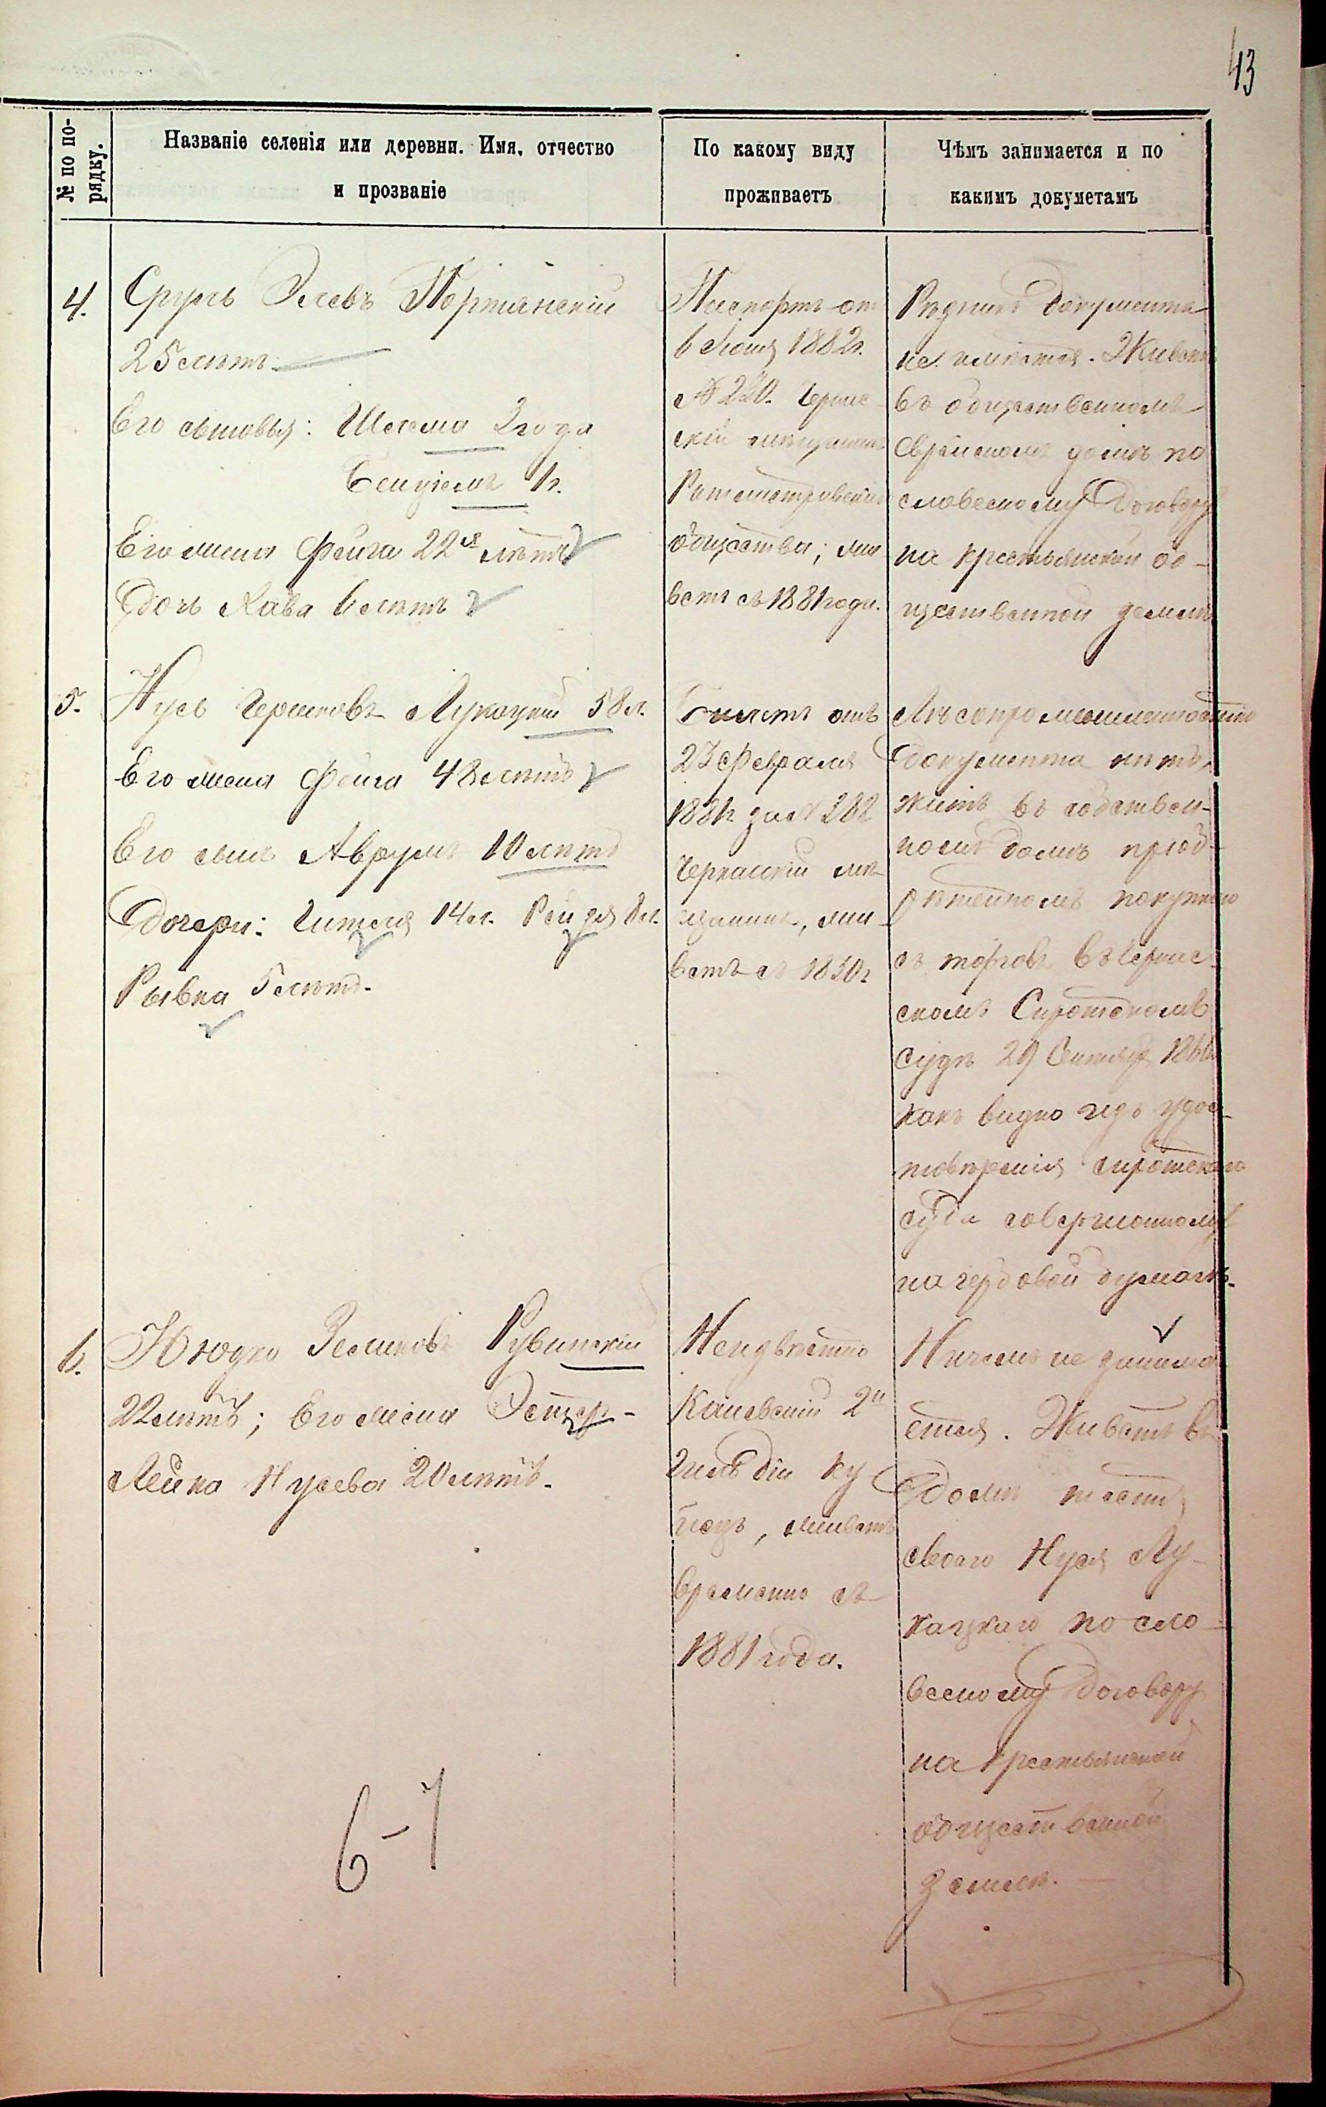 43
№ по по-
рядку.
Названіе селенія или деревни. Имя, отчество
и прозваніе
По какому виду
проживаетъ
Чѣмъ занимается и по
какимъ докуметамъ
4.
Сруль Элевъ Портянскій
25 лѣтъ.
Его сыновья: Шлема 2 года
Беніуемъ 1 г.
Его жена Фейга 22 лѣтъ
Дочь Хава 6 лѣтъ
Паспортъ от
6 Іюня 1882 г.
№ 220. Черкас
скій мѣщанинъ
Ротмистровскаго
общества; жи
ветъ съ 1881 года.
Рѣзникъ документа
не имѣется. Живетъ
въ общественномъ
Еврейскомъ домѣ по
словесному Договору
на крестьянской об-
щественной землѣ
5.
Нусь Гершковъ Лукацкій 58 л.
Его жена Фейга 48 лѣтъ
Его сынъ Аврумъ 10 лѣтъ
Дочери: Гителя 14 л. Рейзя 8 л.
Рывка 5 лѣтъ.
Билетъ отъ
23 Февраля
188 г. за № 282
Черкасскій мѣ
щанинъ, жи-
ветъ съ 1830 г.
Лѣсопромышленностію
Документа нѣтъ,
житъ въ собствен-
номъ домѣ пріоб-
рѣтенномъ покупкою
съ торговъ въ Черкас
скомъ Сиротскомъ
судѣ 29 Сентября 186
какъ видно изъ удос-
товѣренія сиротскаго
суда совершонному
на гербовой бумагѣ.
6.
Нюдко Зеликовъ Рувинскій
22 лѣтъ; Его жена Эстер-
Лейка Нусева 20 лѣтъ.
Неизвѣстно
Каневскій 2й
Гильдіи Ку
пецъ, живетъ
временно съ
1881 года.
Ничемъ не занима
ется. Живетъ въ
Домѣ тестя
своего Нуся Лу-
кацкаго по сло-
весному Договору
на крестьянской
общественной
землѣ.
6-7